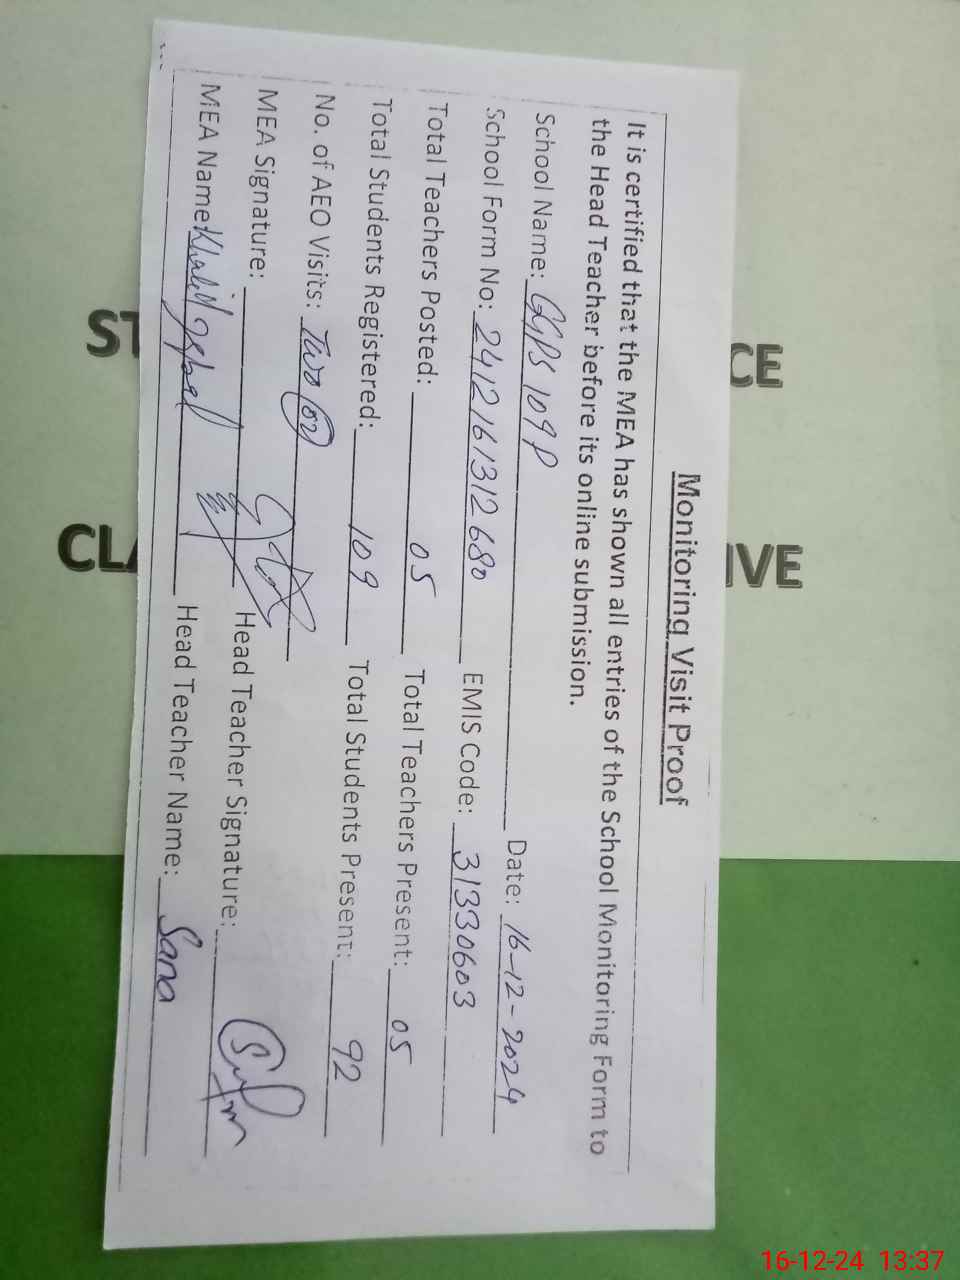 Monitoring Visit Proof
It is certified that the MEA has shown all entries of the School Monitoring Form to
the Head Teacher before its online submission.
School Name: GGPS 109 P Date: 16-12-2024
School Form No: 2412161312680 EMIS Code: 31330603
Total Teachers Posted: 05 Total Teachers Present: 05
Total Students Registered: 109 Total Students Present: 92
No. of AEO Visits: Two 02
MEA Signature: Head Teacher Signature:
MEA Name: Khalil Iqbal Head Teacher Name: Sana
ST CE
CLA IVE
16-12-24 13:37